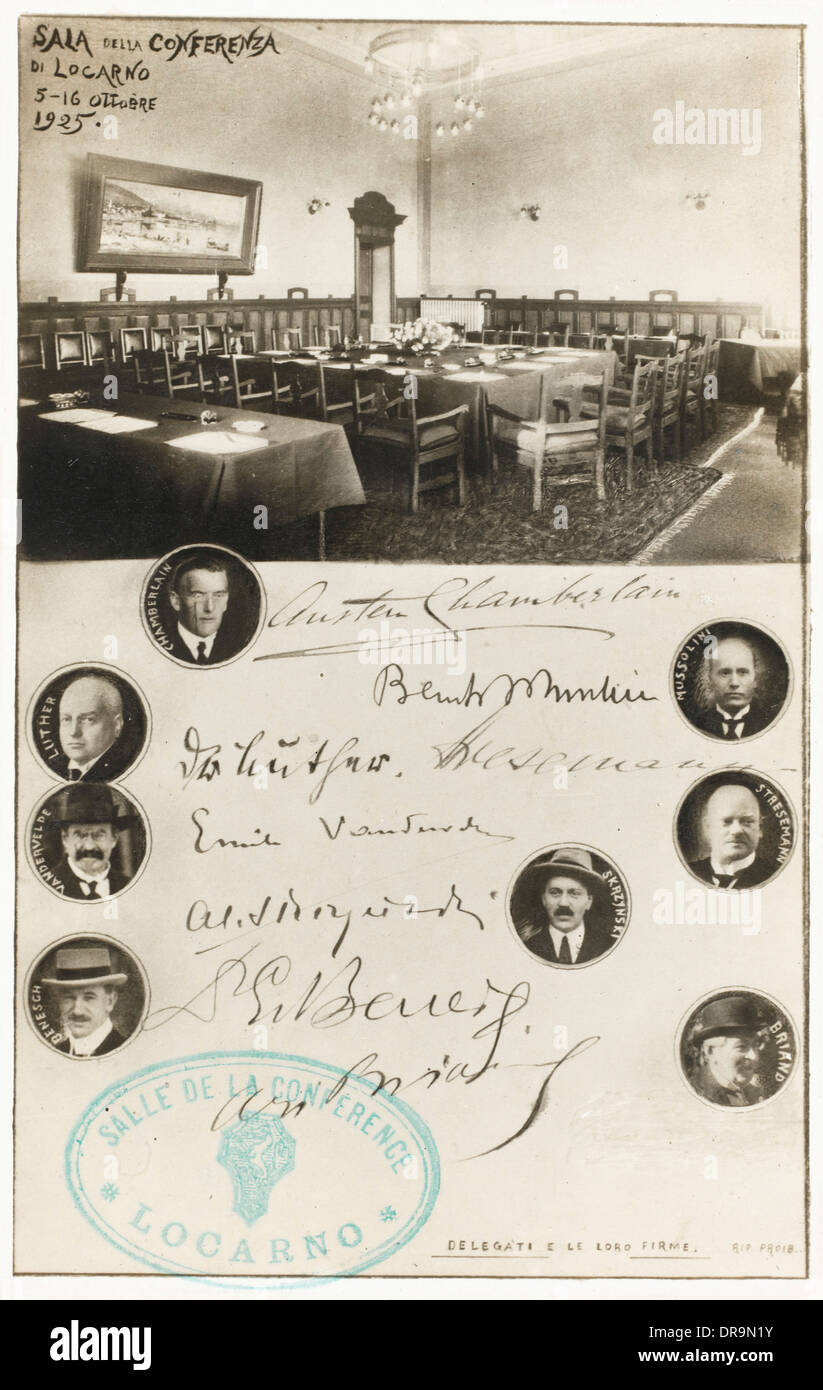 SALA DELLA CONFERENZA
DI LOCARNO
5-16 OTTOBRE
1925.
CHAMBERLAIN
Austen Chamberlain
MUSSOLINI
Benito Mussolini
LUTHER
Dr Luther.
Stresemann
VANDERVELDE
Emile Vandervelde
STRESEMANN
SKRZYNSKI
Al. Skrzynski
BENESCH
Dr E. Beneš
BRIAND
Ari Briand
SALLE DE LA CONFÉRENCE
* LOCARNO *
DELEGATI E LE LORO FIRME.
RIP. PROIB.
alamy
a
alamy stock photo
DR9N1Y
www.alamy.com